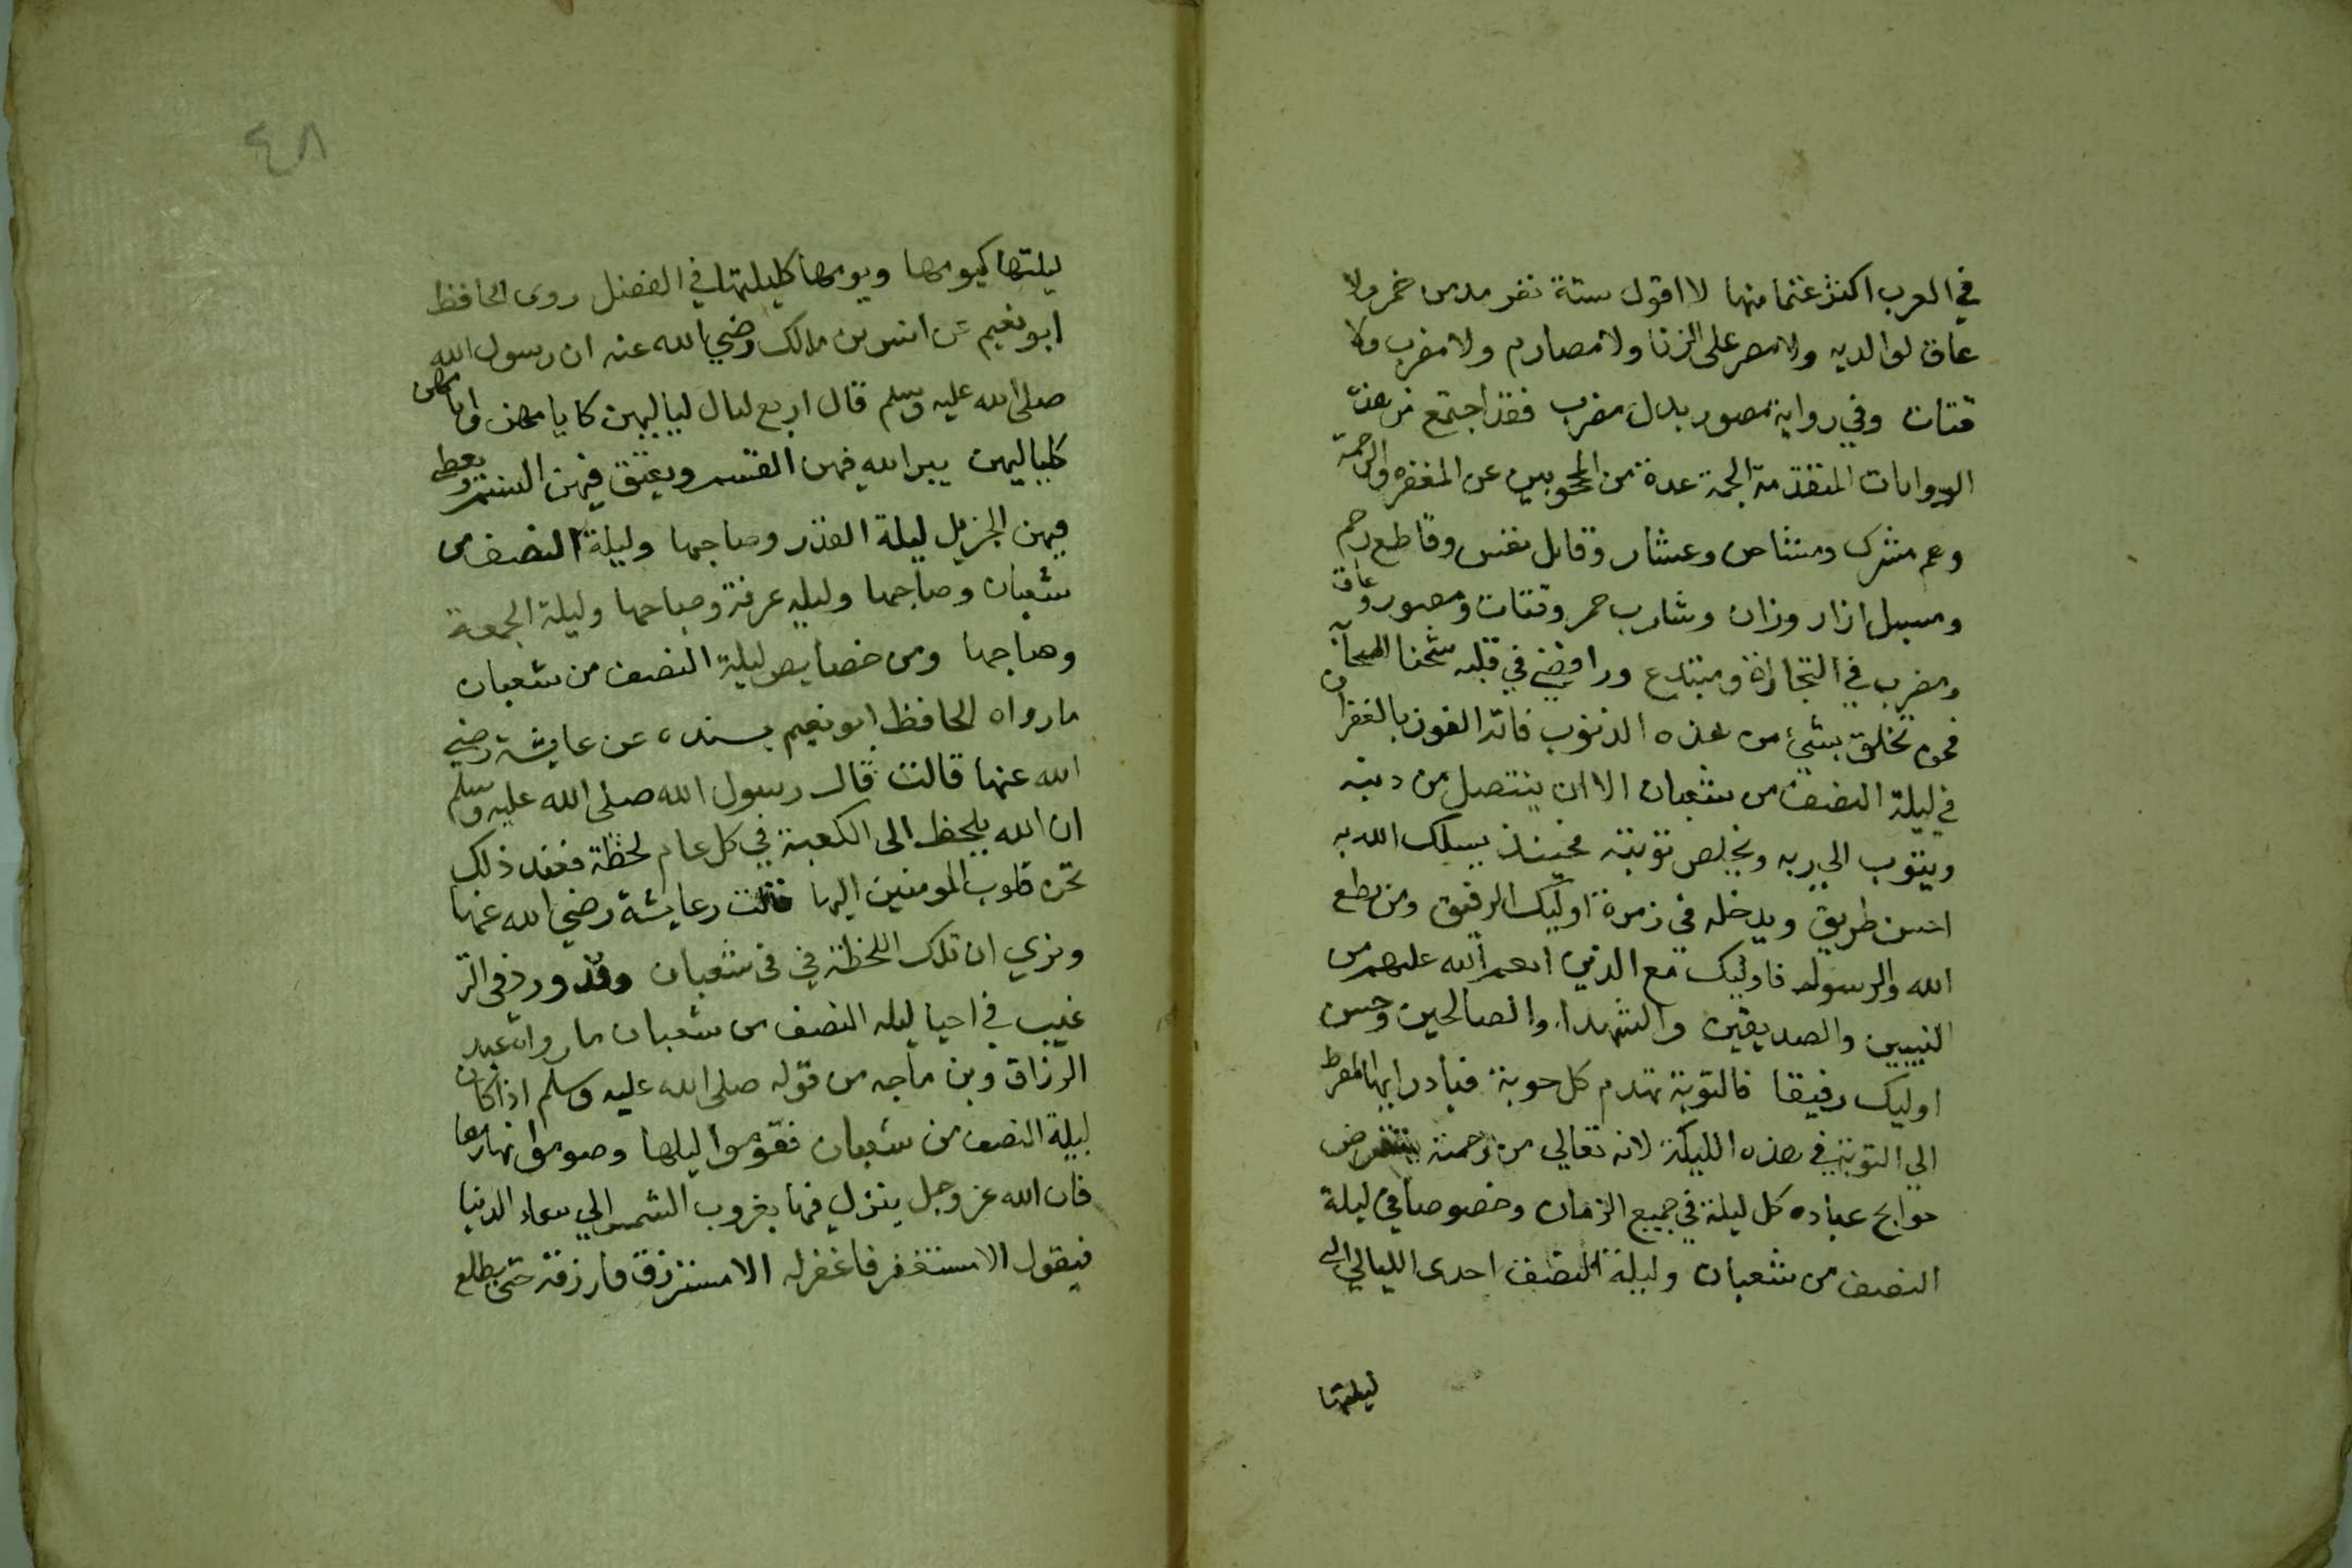 في العرب اكثر غنما منها لا اقول ستة نفر مدمن خمر ولا
عاق لوالديه ولا مصر على الزنا ولا مصارم ولا مضرب ولا
قتات وفي رواية مصور بدل مضرب فقد اجتمع من هذه
الروايات المتقدمة الجمة عدة من المحجوبين عن المغفره والرحمة
وهم مشرك ومشاحن وعشار وقاتل نفس وقاطع رحم
ومسبل ازار وزان وشارب خمر وقتات ومصور وعاق
ومضرب في التجارة ومبتدع ورافضي في قلبه شحنا الصحابه
فمن تخلق بشيء من هذه الذنوب فاته الفوز بالغفران
في ليلة النصف من شعبان الا ان ينتصل من دينه
ويتوب الى ربه ويخلص توبته فحينئذ يسلك الله به
احسن طريق ويدخله في زمرة اوليك الرفيق ومن يطع
الله والرسول فاوليك مع الذين انعم الله عليهم من
النبيين والصديقين والشهداء والصالحين وحسن
اوليك رفيقا فالتوبة تهدم كل حوبة فبادر ايها المفرط
الي التوبة في هذه الليلة لانه تعالي من رحمته يستعرض
حوايج عباده كل ليلة في جميع الزمان وخصوصا في ليلة
النصف من شعبان وليلة النصف احدى الليالي التي
ليلتها
٤٨
ليلتها كيومها ويومها كليلتها في الفضل روى الحافظ
ابو نعيم عن انس بن مالك رضي الله عنه ان رسول الله
صلى الله عليه وسلم قال اربع ليال لياليهن كايامهن وايامهن
كلياليهن يبر الله فيهن القسم ويعتق فيهن النسم ويعطى
فيهن الجزيل ليلة القدر وصباحها وليلة النصف من
شعبان وصباحها وليله عرفة وصباحها وليلة الجمعة
وصباحها ومن خصايص ليلة النصف من شعبان
ما رواه الحافظ ابو نعيم بسنده عن عايشة رضي
الله عنها قالت قال رسول الله صلى الله عليه وسلم
ان الله يلحظ الى الكعبة في كل عام لحظة فعند ذلك
تحن قلوب المومنين اليها قالت عايشة رضي الله عنها
ونري ان تلك اللحظة في في شعبان وقد ورد في التر
غيب في احيا ليله النصف من شعبان ما رواه عبد
الرزاق وبن ماجه من قوله صلى الله عليه وسلم اذا كان
ليلة النصف من شعبان فقوموا ليلها وصوموا نهارها
فان الله عز وجل ينزل فيها بغروب الشمس الي سماء الدنيا
فيقول الا مستغفر فاغفر له الا مسترزق فارزقه حتى يطلع